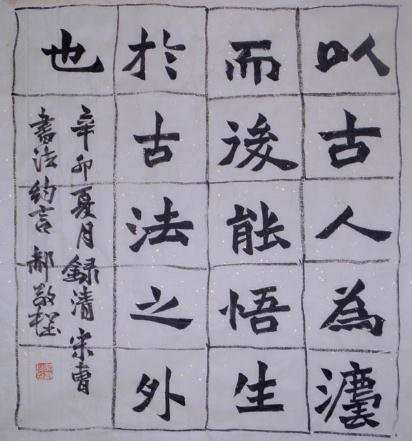 以古人為灋
而後能悟生
於古法之外
也
辛卯夏月録清宋曹
書法約言 郝敬